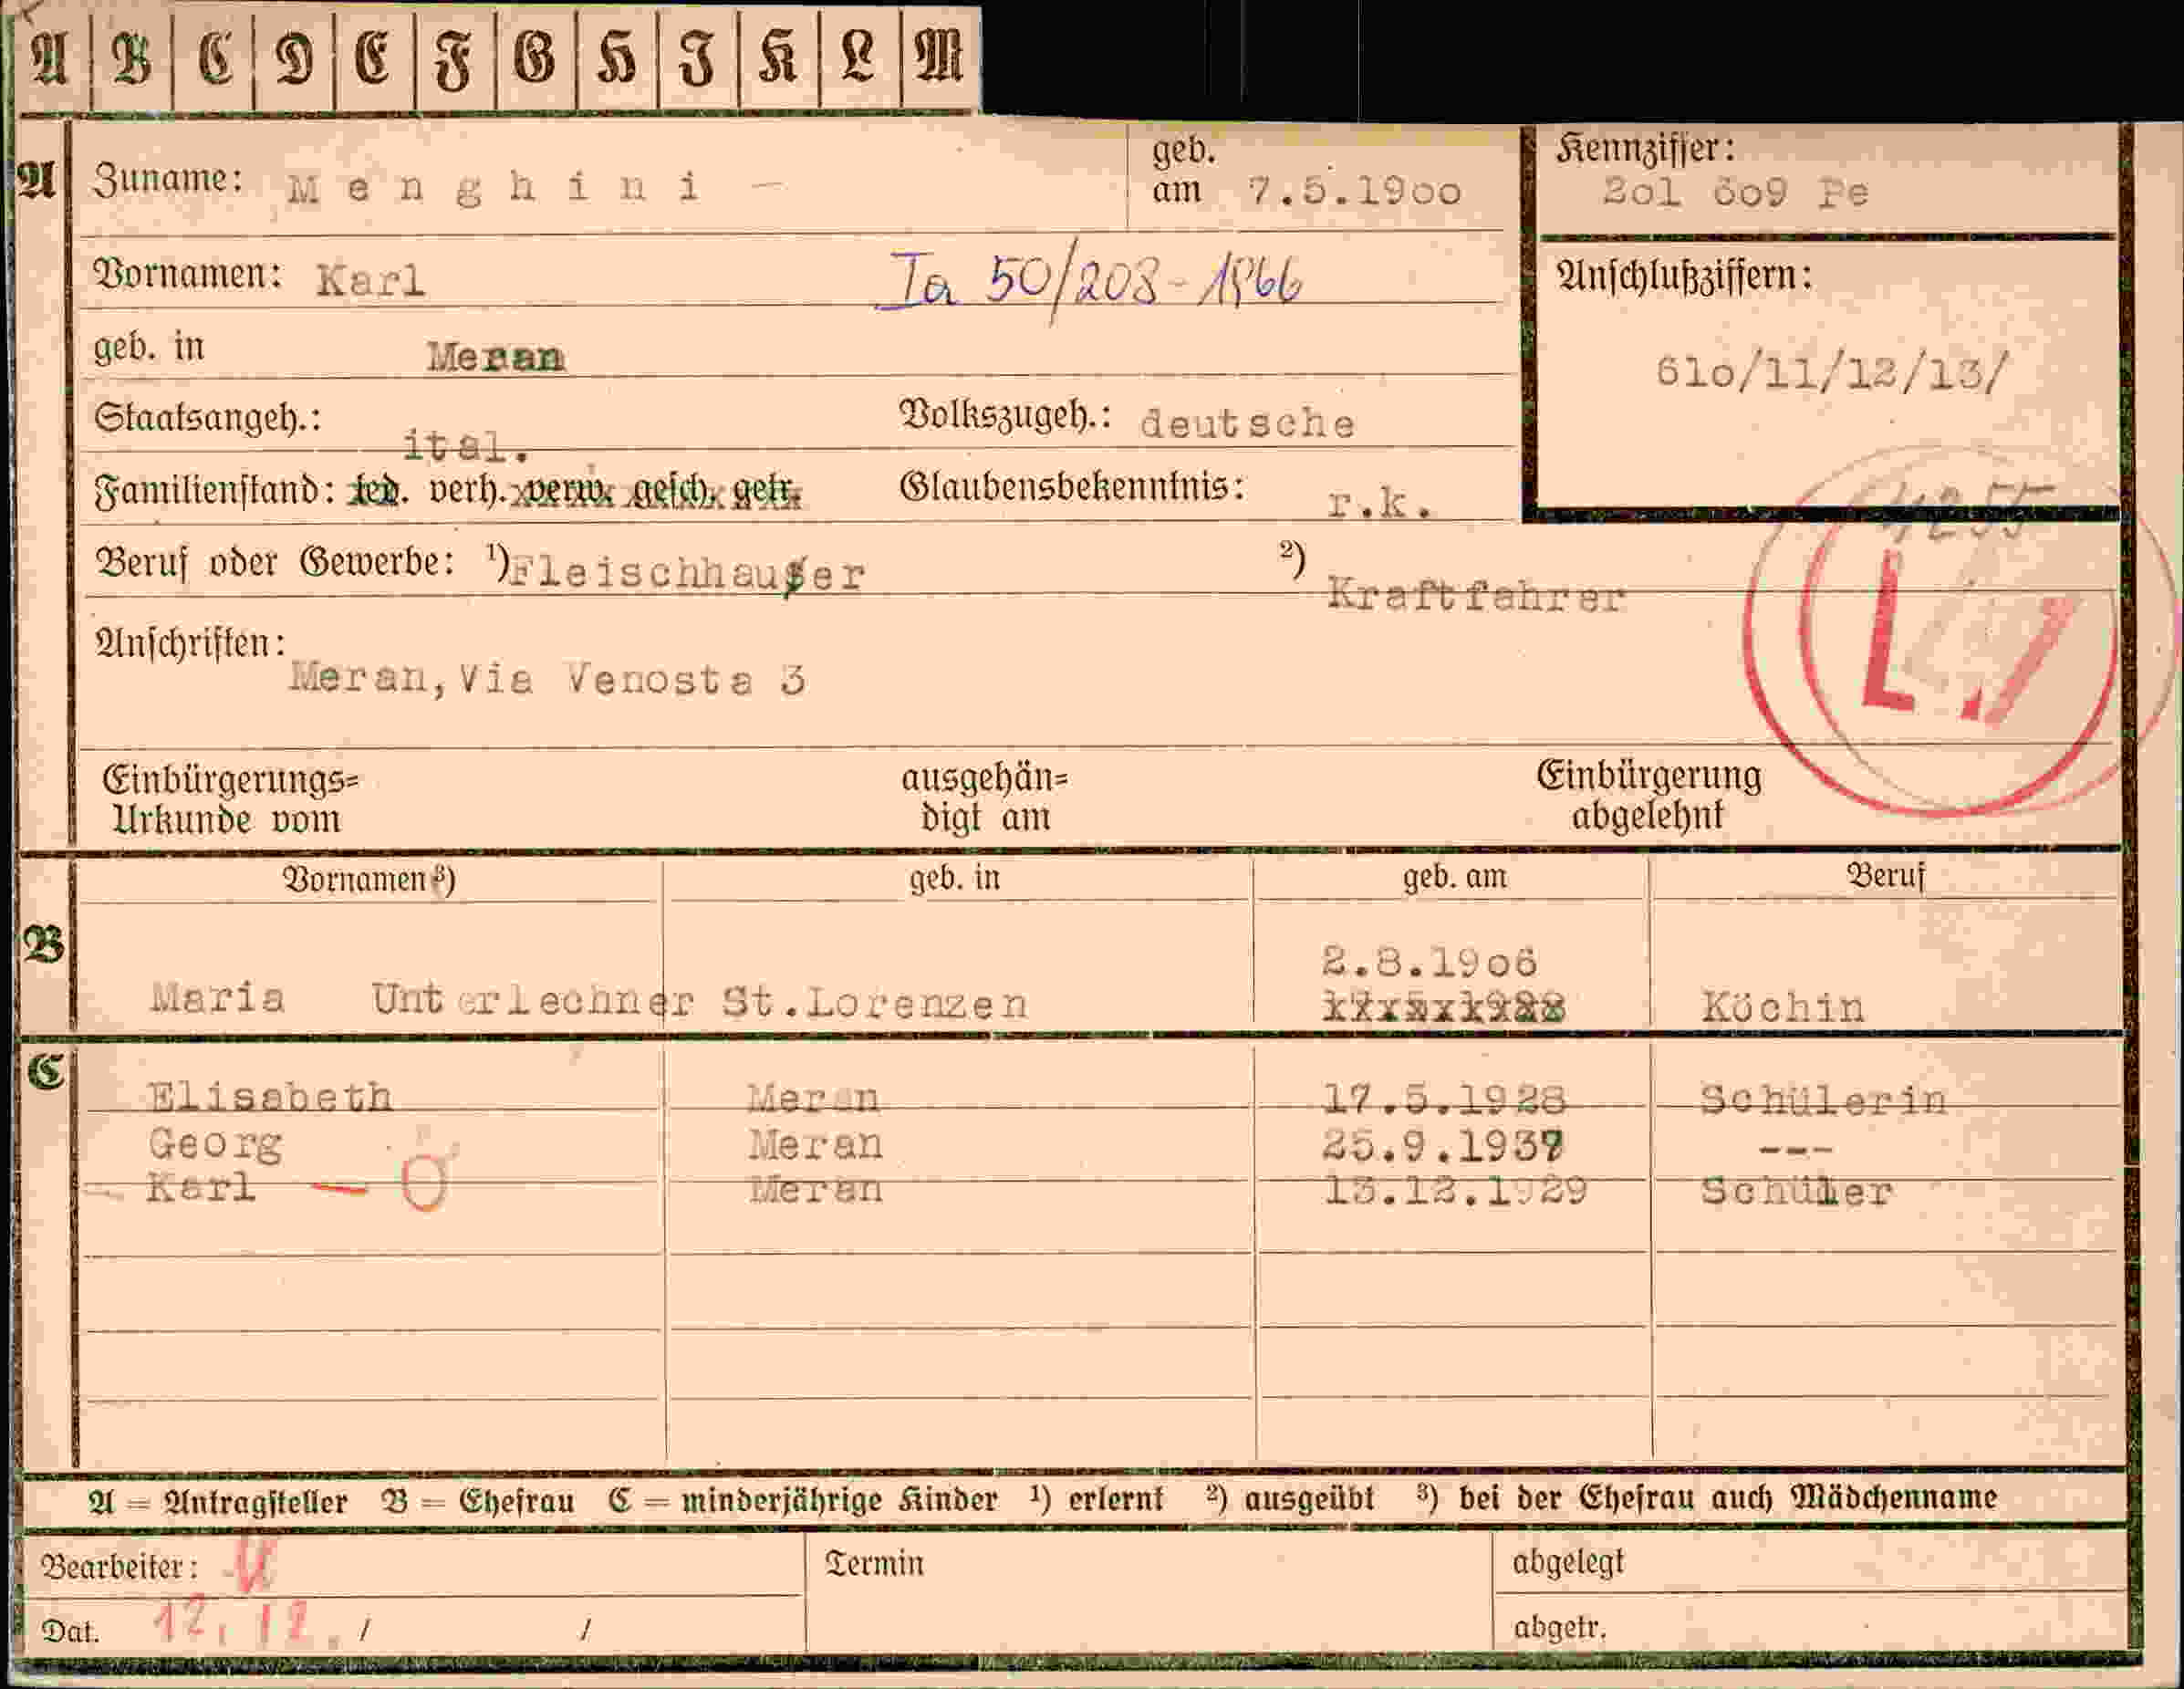 A B C D E F G H I K L M
A Zuname: Menghini - geb. am 7.5.1900 Kennziffer: 201 609 Pe
Vornamen: Karl Ia 50/208-1966 Anschlußziffern:
geb. in Meran 610/11/12/13/
Staatsangeh.: ital. Volkszugeh.: deutsche
Familienstand: led. verh. verw. gesch. getr. Glaubensbekenntnis: r.k.
Beruf oder Gewerbe: ¹) Fleischhauer ²) Kraftfahrer
Anschriften:
Meran, Via Venosta 3
Einbürgerungs= Urkunde vom ausgehän= digt am Einbürgerung abgelehnt
Vornamen ³) geb. in geb. am Beruf
B 2.8.1906
Maria Unterlechner St.Lorenzen Köchin
C
Elisabeth Meran 17.5.1928 Schülerin
Georg Meran 25.9.1937 ---
Karl - O Meran 13.12.1929 Schüler
A = Antragsteller B = Ehefrau C = minderjährige Kinder ¹) erlernt ²) ausgeübt ³) bei der Ehefrau auch Mädchenname
Bearbeiter: Termin abgelegt
Dat. 12.12. / / abgetr.